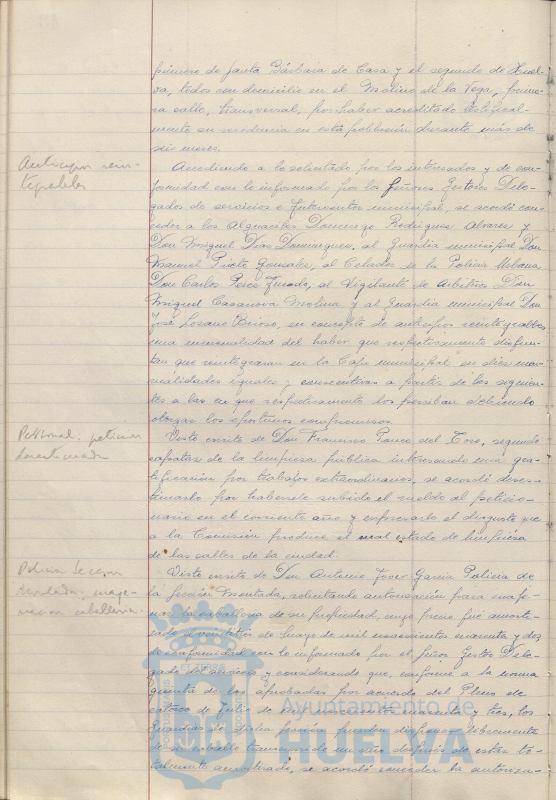 primero de Santa Bárbara de Casa y el segundo de Huel-
va, todos con domicilio en el Molino de la Vega, prime-
ra calle, transversal, por haber acreditado testifical-
mente su residencia en esta población durante más de
seis meses.
Anticipos rein-
tegrables
Accediendo a lo solicitado por los interesados y de con-
formidad con lo informado por los Señores Gestores Dele-
gados de servicios e Interventor municipal, se acordó con-
ceder a los Alguaciles Domingo Rodríguez Alvarez y
Don Miguel Díaz Domínguez, al Guardia municipal Don
Manuel Prieto González, al Celador de la Policía Urbana
Don Carlos Pérez Jurado, al Vigilante de Arbitrios Don
Miguel Casanova Molina y al Guardia municipal Don
José Lozano Bioso, en concepto de anticipos reintegrables
una mensualidad del haber que respectivamente disfru-
tan que reintegraran en la Caja municipal en diez men-
sualidades iguales y consecutivas a partir de las siguien-
tes a las en que respectivamente los perciban debiendo
otorgar los oportunos compromisos.
Personal: petición
desestimada
Visto escrito de Don Francisco Ponce del Toro, segundo
capataz de la limpieza pública interesando una gra-
tificación por trabajos extraordinarios, se acordó deses-
timarlo por habersele subido el sueldo al peticio-
nario en el corriente año y expresarle el disgusto que
a la Comisión produce el mal estado de limpieza
de las calles de la ciudad.
Policia Seccion
Montada:
caballeria.
Visto escrito de Don Antonio García Policía de
la Sección Montada, solicitando autorización para enaje-
nar la caballería de su propiedad, cuyo precio fué amorti-
zado a veintitrés de Mayo de mil novecientos cuarenta y dos,
de conformidad con lo informado por el Señor Gestor Dele-
gado del servicio y considerando que, conforme a la norma
quinta de las aprobadas por acuerdo del Pleno de
catorce de Julio de mil novecientos cuarenta y tres, los
Guardias de dicha Sección pueden disponer libremente
de su caballo transcurrido un año después de estar to-
talmente amortizado, se acordó conceder la autoriza-
Ayuntamiento de
HUELVA